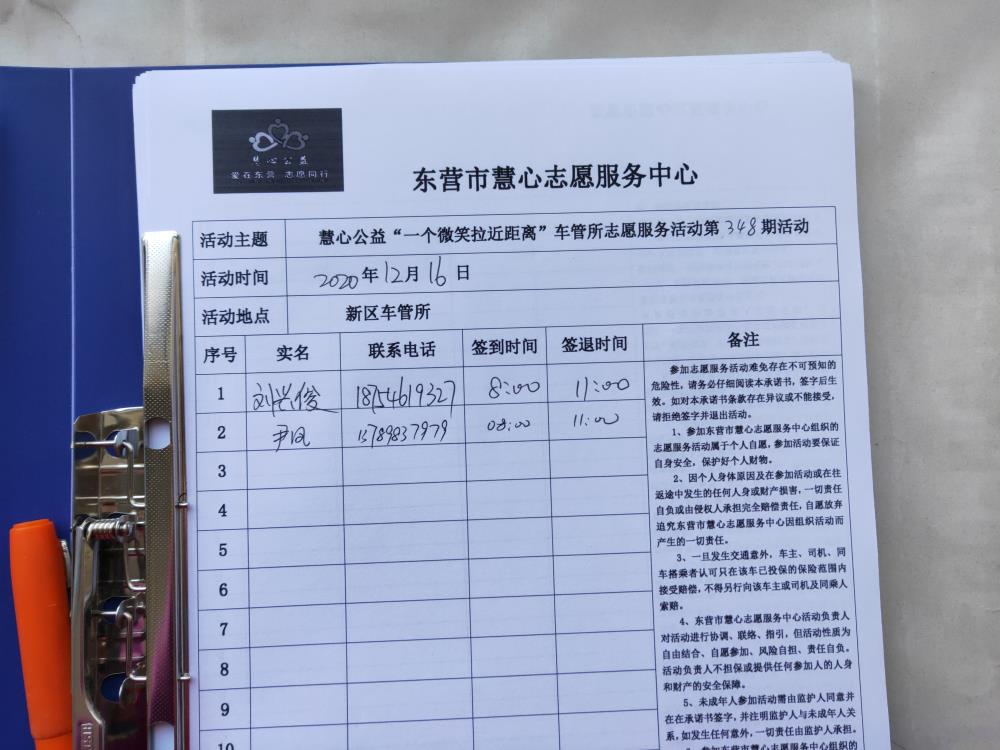 慧心公益
爱在东营 志愿同行
东营市慧心志愿服务中心
活动主题 慧心公益“一个微笑拉近距离”车管所志愿服务活动第348期活动
活动时间 2020年12月16日
活动地点 新区车管所
序号 实名 联系电话 签到时间 签退时间 备注
1 刘兴俊 18754619327 8:00 11:00
2 尹凤 13789837979 08:00 11:00
3
4
5
6
7
8
9
10
参加志愿服务活动难免存在不可预知的
危险性，请务必仔细阅读本承诺书，签字后生
效。如对本承诺书条款存在异议或不能接受，
请拒绝签字并退出活动。
1、参加东营市慧心志愿服务中心组织的
志愿服务活动属于个人自愿，参加活动要保证
自身安全，保护好个人财物。
2、因个人身体原因及在参加活动或在往
返途中发生的任何人身或财产损害，一切责任
自负或由侵权人承担完全赔偿责任，自愿放弃
追究东营市慧心志愿服务中心因组织活动而
产生的一切责任。
3、一旦发生交通意外，车主、司机、同
车搭乘者认可只在该车已投保的保险范围内
接受赔偿，不得另行向该车主或司机及同乘人
索赔。
4、东营市慧心志愿服务中心活动负责人
对活动进行协调、联络、指引，但活动性质为
自由结合、自愿参加、风险自担、责任自负。
活动负责人不担保或提供任何参加人的人身
和财产的安全保障。
5、未成年人参加活动需由监护人同意并
在在承诺书签字，并注明监护人与未成年人关
系，如发生任何意外，一切责任由监护人承担。
参加东营市慧心志愿服务中心组织的